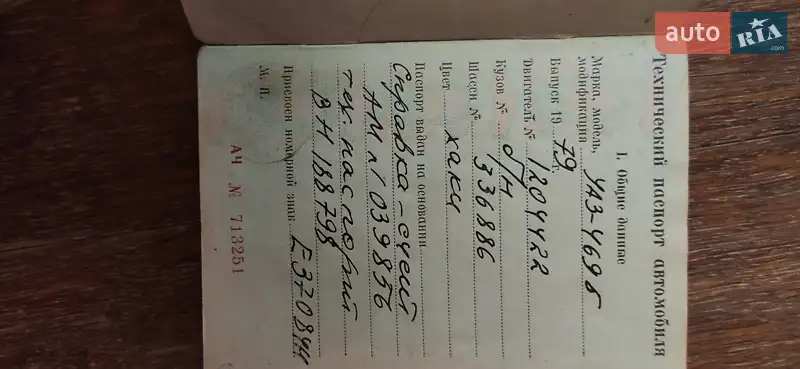 Технический паспорт автомобиля
I. Общие данные
Марка, модель,
модификация УАЗ-469 б
Выпуск 19 79
Двигатель № 1204422
Кузов № б/н
Шасси № 336886
Цвет хаки
Паспорт выдан на основании
Справка-счёт
АМл 1039856
тех. паспорт
ВН 188798
Присвоен номерной знак
М. П.
АЧ № 713251
auto
RIA
.com